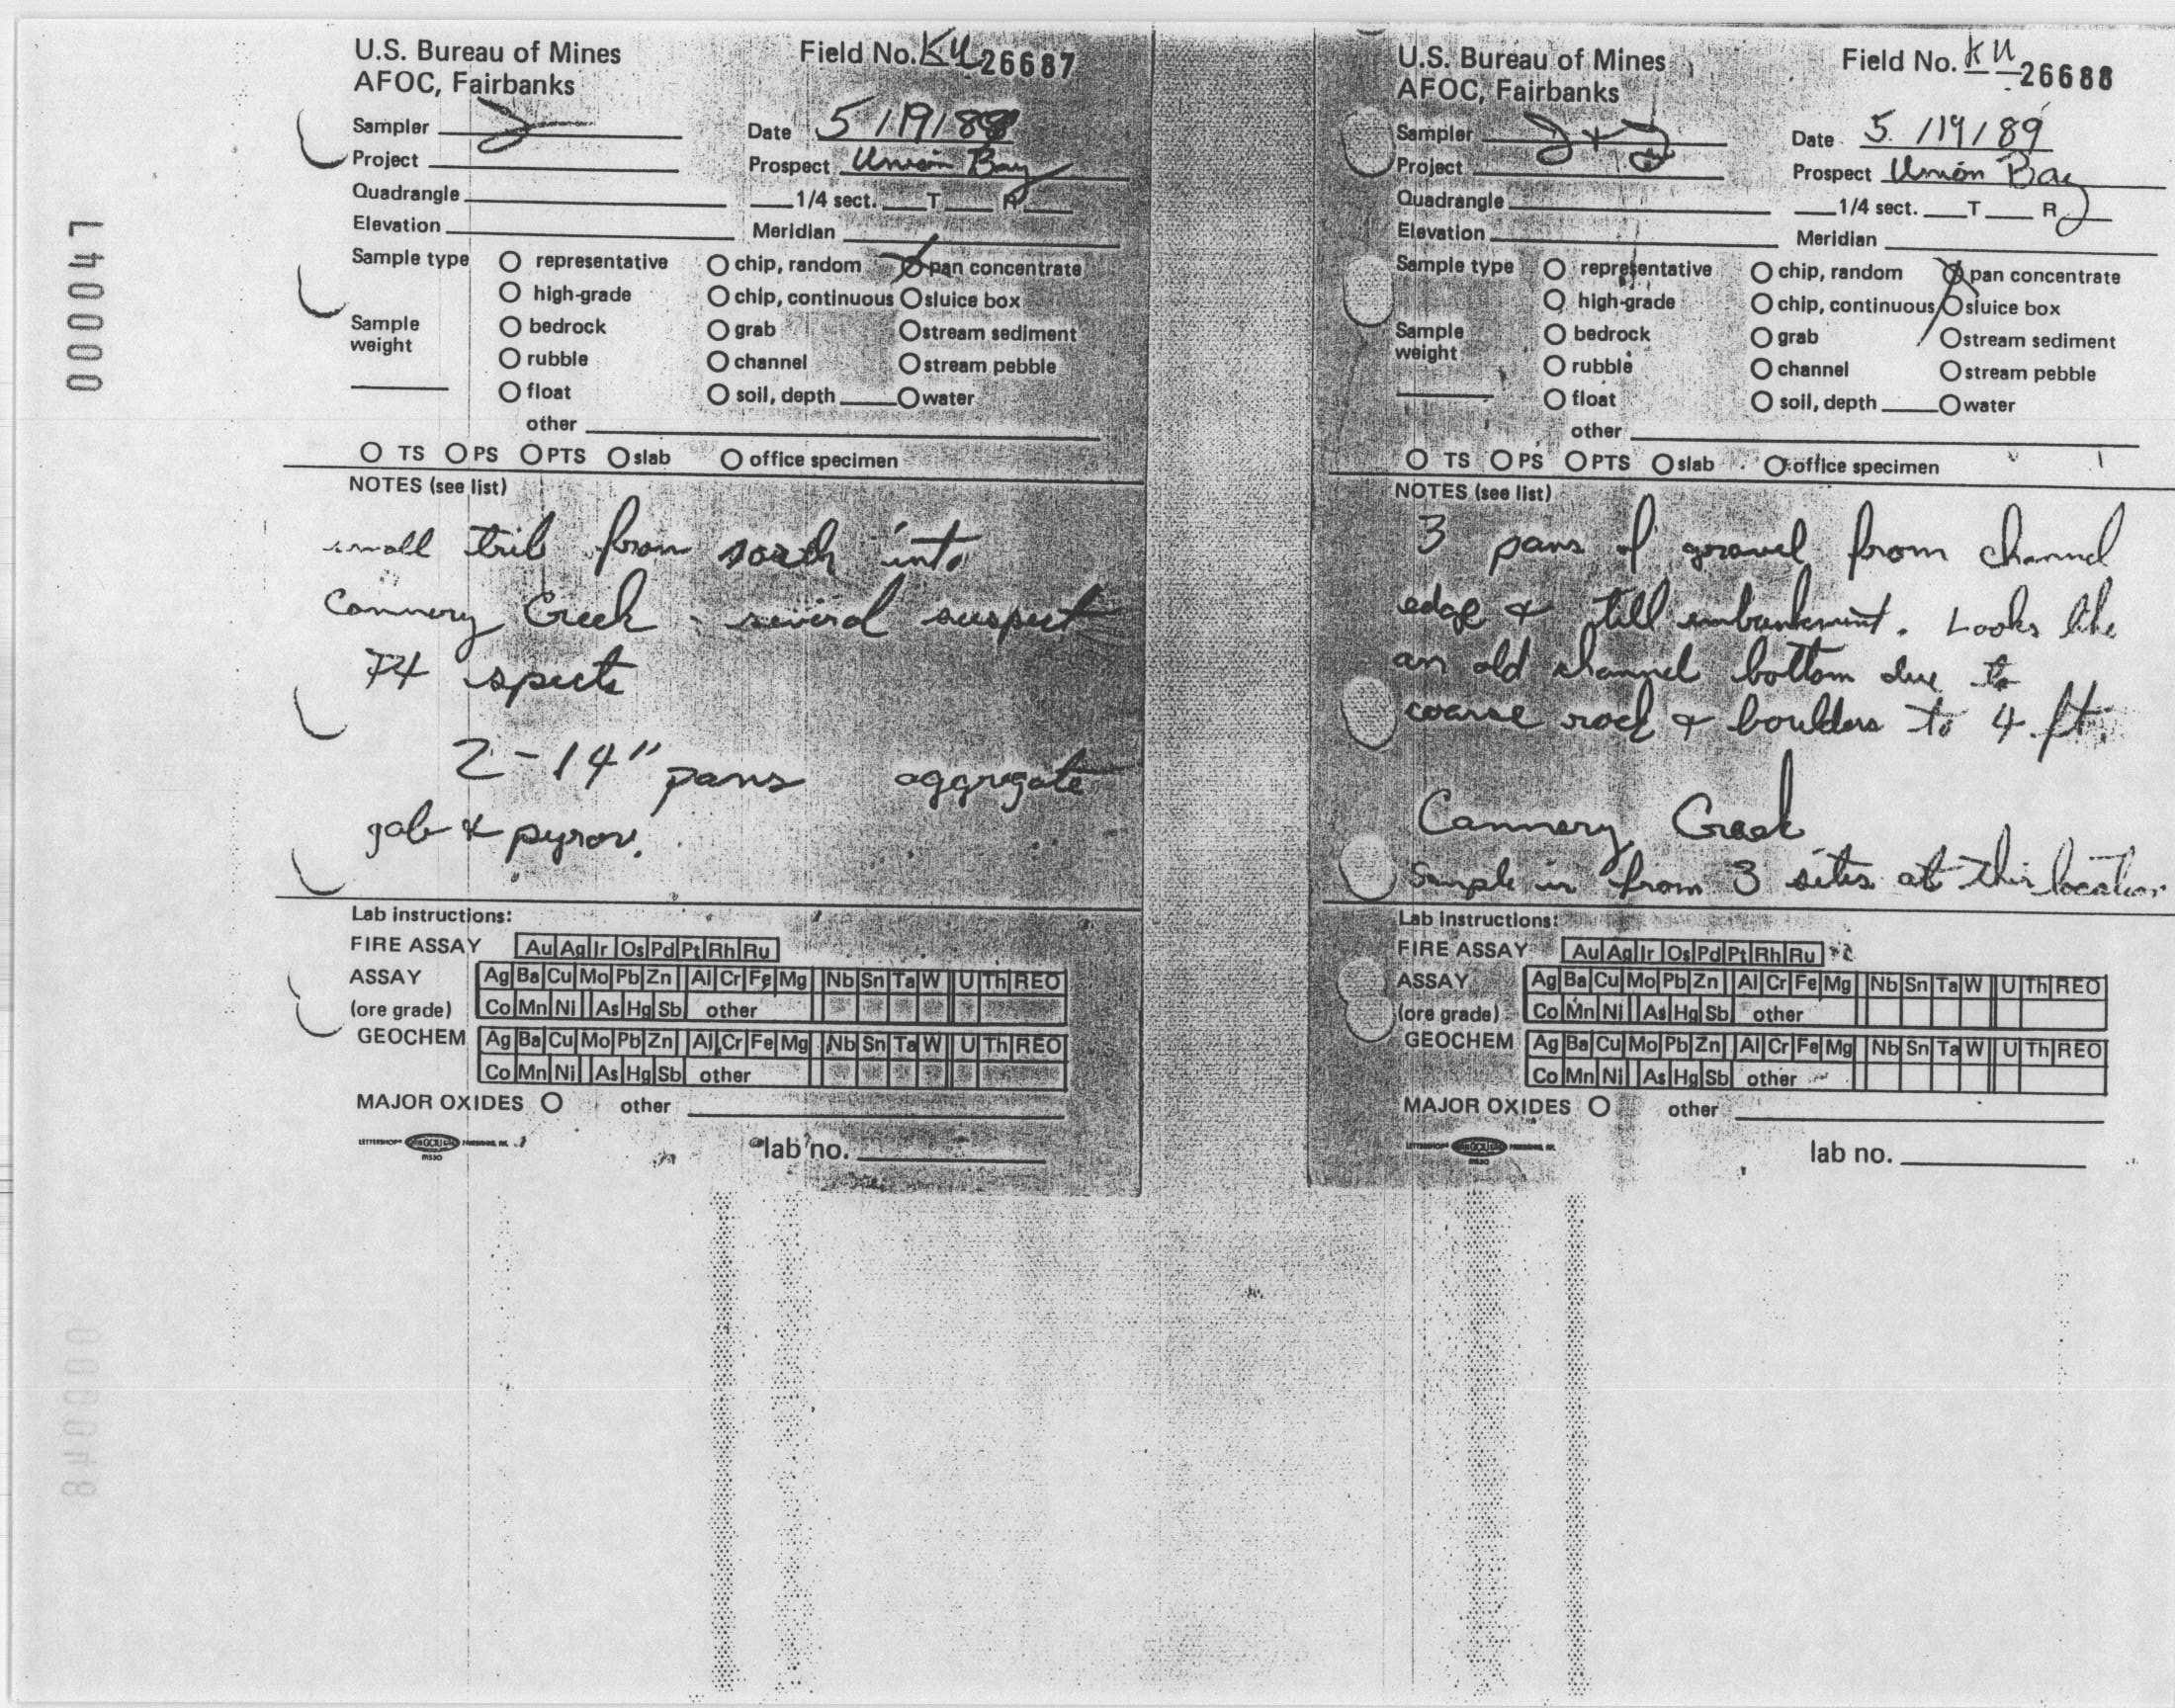 L40000
U.S. Bureau of Mines
AFOC, Fairbanks
Field No. KU 26687
Sampler
Date 5/19/88
Project
Prospect Union Bay
Quadrangle
1/4 sect. T R
Elevation
Meridian
Sample type
representative chip, random pan concentrate
high-grade chip, continuous sluice box
Sample weight
bedrock grab stream sediment
rubble channel stream pebble
float soil, depth water
other
TS PS PTS slab office specimen
NOTES (see list)
small trib from south into
Cannery Creek - several suspect
specks
2-14" pans aggregate
gab & pyrox.
Lab instructions:
FIRE ASSAY Au Ag Ir Os Pd Pt Rh Ru
ASSAY Ag Ba Cu Mo Pb Zn Al Cr Fe Mg Nb Sn Ta W U Th REO
(ore grade) Co Mn Ni As Hg Sb other
GEOCHEM Ag Ba Cu Mo Pb Zn Al Cr Fe Mg Nb Sn Ta W U Th REO
Co Mn Ni As Hg Sb other
MAJOR OXIDES other
lab no.
U.S. Bureau of Mines
AFOC, Fairbanks
Field No. KU 26688
Sampler J+J
Date 5/19/89
Project
Prospect Union Bay
Quadrangle
1/4 sect. T R
Elevation
Meridian
Sample type
representative chip, random pan concentrate
high-grade chip, continuous sluice box
Sample weight
bedrock grab stream sediment
rubble channel stream pebble
float soil, depth water
other
TS PS PTS slab office specimen
NOTES (see list)
3 pans of gravel from channel
edge & till embankment. Looks like
an old channel bottom due to
coarse rock & boulders to 4 ft.
Cannery Creek
Sample is from 3 sites at this location
Lab instructions:
FIRE ASSAY Au Ag Ir Os Pd Pt Rh Ru
ASSAY Ag Ba Cu Mo Pb Zn Al Cr Fe Mg Nb Sn Ta W U Th REO
(ore grade) Co Mn Ni As Hg Sb other
GEOCHEM Ag Ba Cu Mo Pb Zn Al Cr Fe Mg Nb Sn Ta W U Th REO
Co Mn Ni As Hg Sb other
MAJOR OXIDES other
lab no.